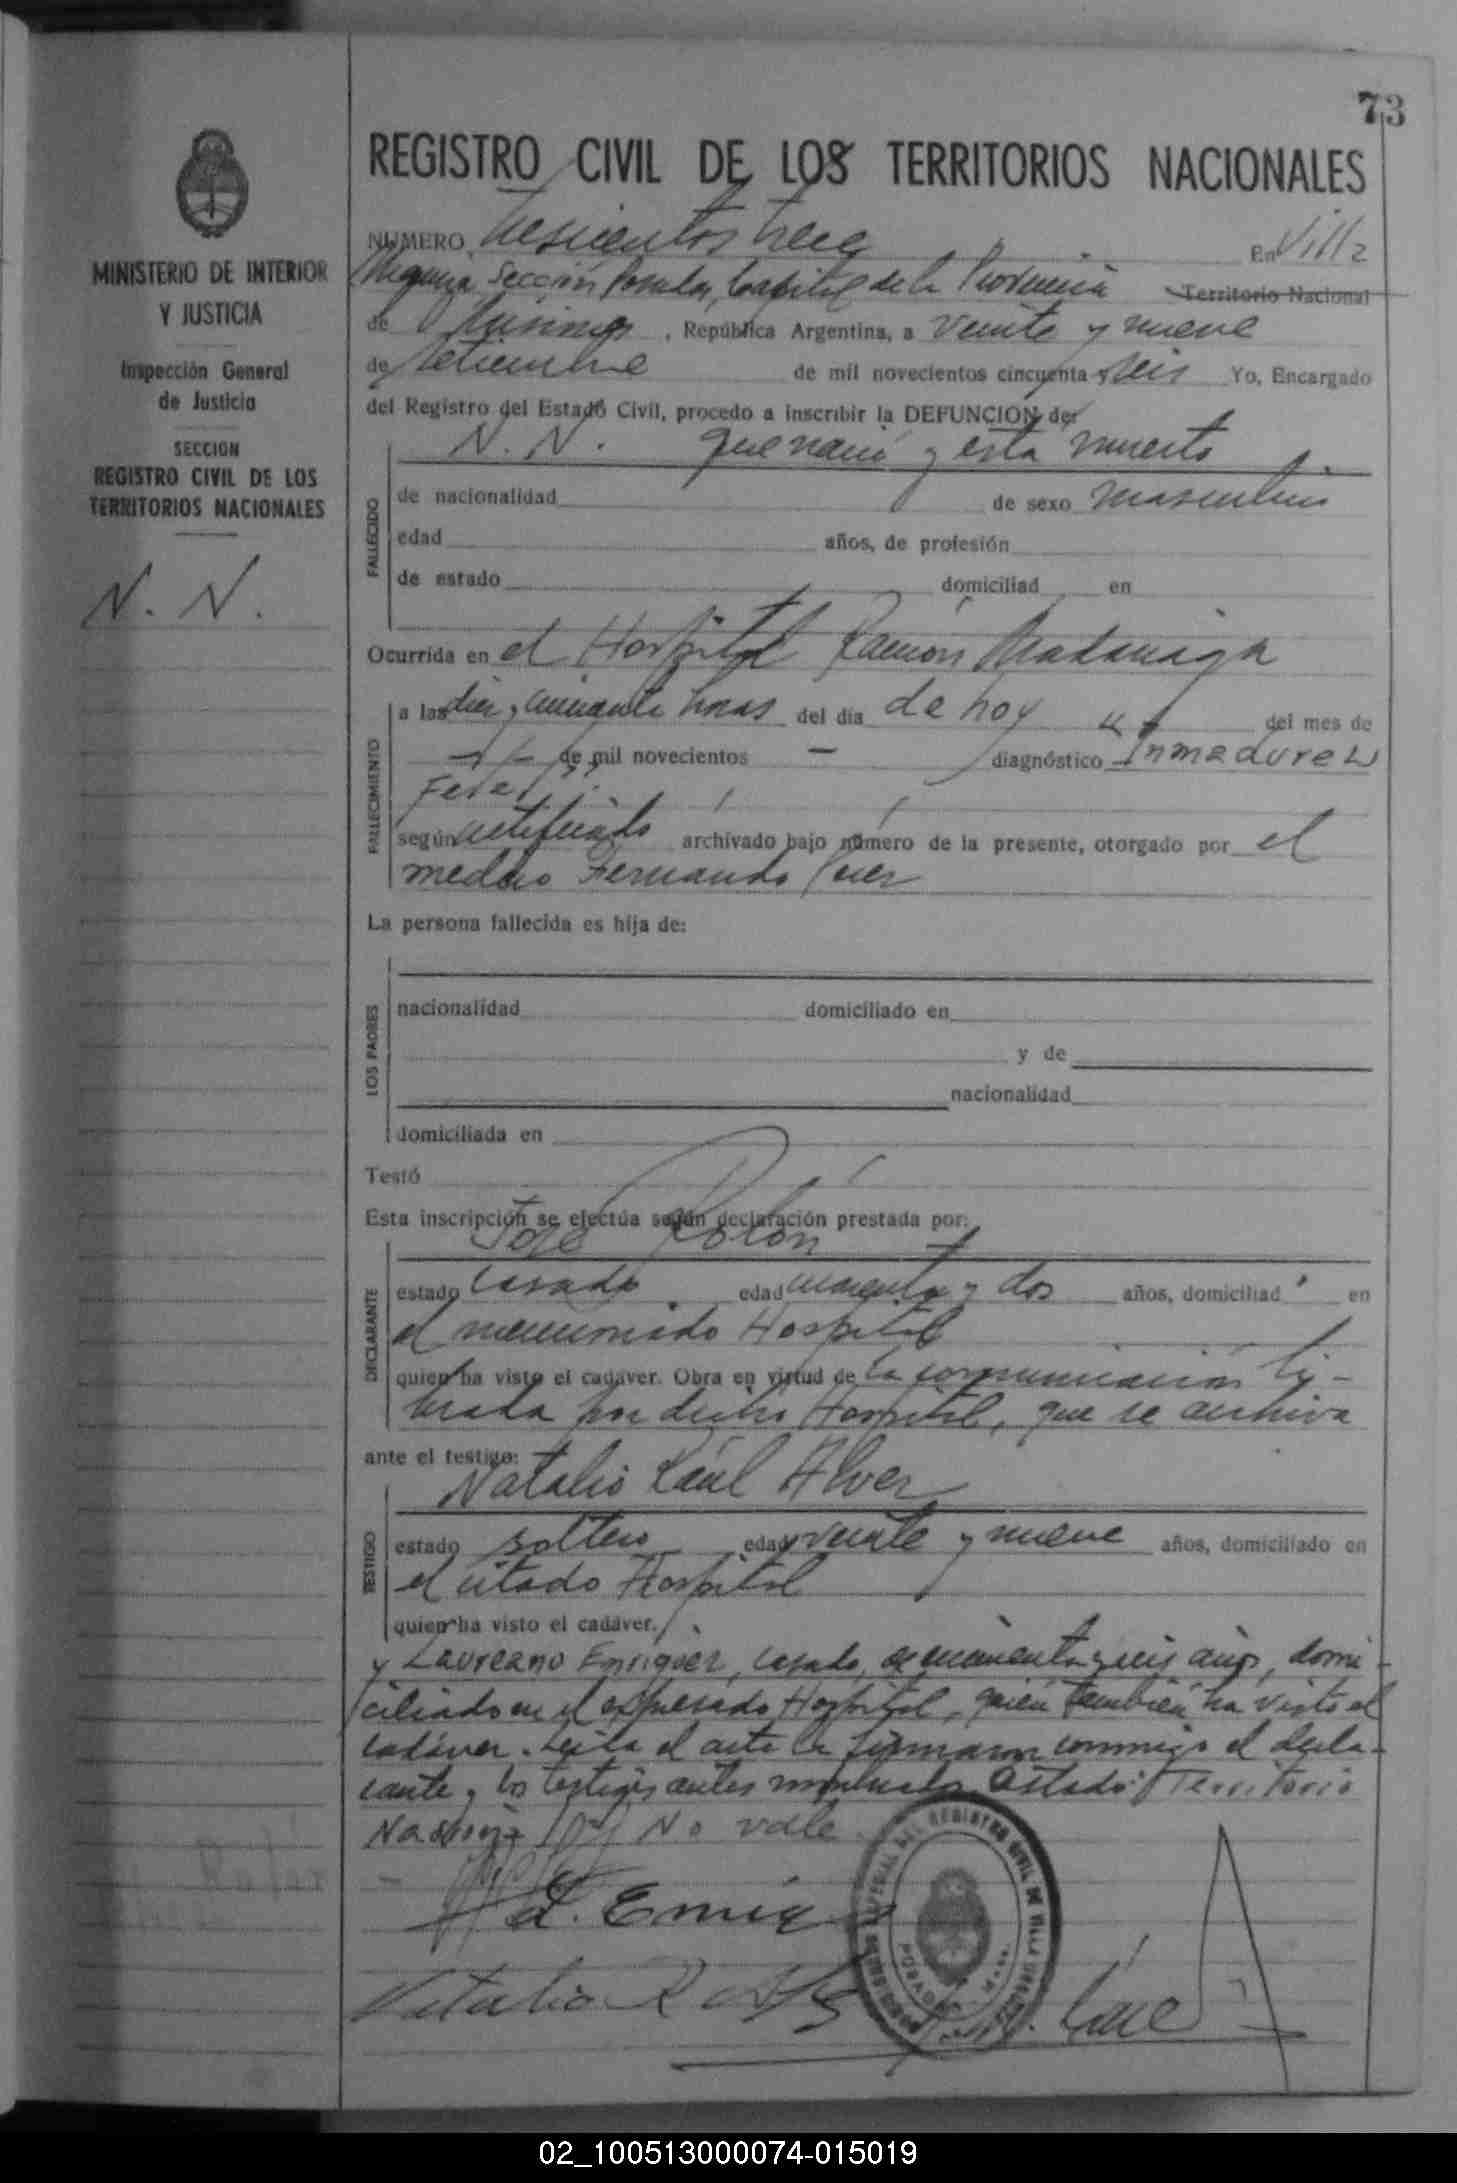 73
REGISTRO CIVIL DE LOS TERRITORIOS NACIONALES
MINISTERIO DE INTERIOR
Y JUSTICIA
Inspección General
de Justicia
SECCION
REGISTRO CIVIL DE LOS
TERRITORIOS NACIONALES
N. N.
NUMERO Trescientos trece En Villa
Urquiza Sección Posadas, Capital de la Provincia Territorio Nacional
de Misiones, República Argentina, a veinte y nueve
de setiembre de mil novecientos cincuenta y seis Yo, Encargado
del Registro del Estado Civil, procedo a inscribir la DEFUNCION de:
N. N. que nació y está muerto
FALLECIDO
de nacionalidad de sexo masculino
edad años, de profesión
de estado domiciliad en
Ocurrida en el Hospital Ramón Madariaga
FALLECIMIENTO
a las diez y cincuenta horas del día de hoy del mes de
de mil novecientos — diagnóstico Inmadurez
Fetal
según certificado archivado bajo número de la presente, otorgado por el
medico Fernando
La persona fallecida es hija de:
LOS PADRES
nacionalidad domiciliado en
y de
nacionalidad
domiciliada en
Testó
Esta inscripción se efectúa según declaración prestada por:
José Rolón
DECLARANTE
estado casado edad cincuenta y dos años, domiciliad en
el mencionado Hospital
quien ha visto el cadáver. Obra en virtud de la comunicación li-
brada por dicho Hospital, que se archiva
ante el testigo:
Natalio Raúl Alvez
TESTIGO
estado soltero edad veinte y nueve años, domiciliado en
el citado Hospital
quien ha visto el cadáver.
y Laureano Enriquez, casado, de cincuenta y seis años, domi-
ciliado en el expresado Hospital, quien también ha visto el
cadáver. Leida el acta la firmaron conmigo el decla-
rante y los testigos antes nombrados. Testado: Territorio
Nacional No vale
L. Enriq
Natalio R
02_100513000074-015019